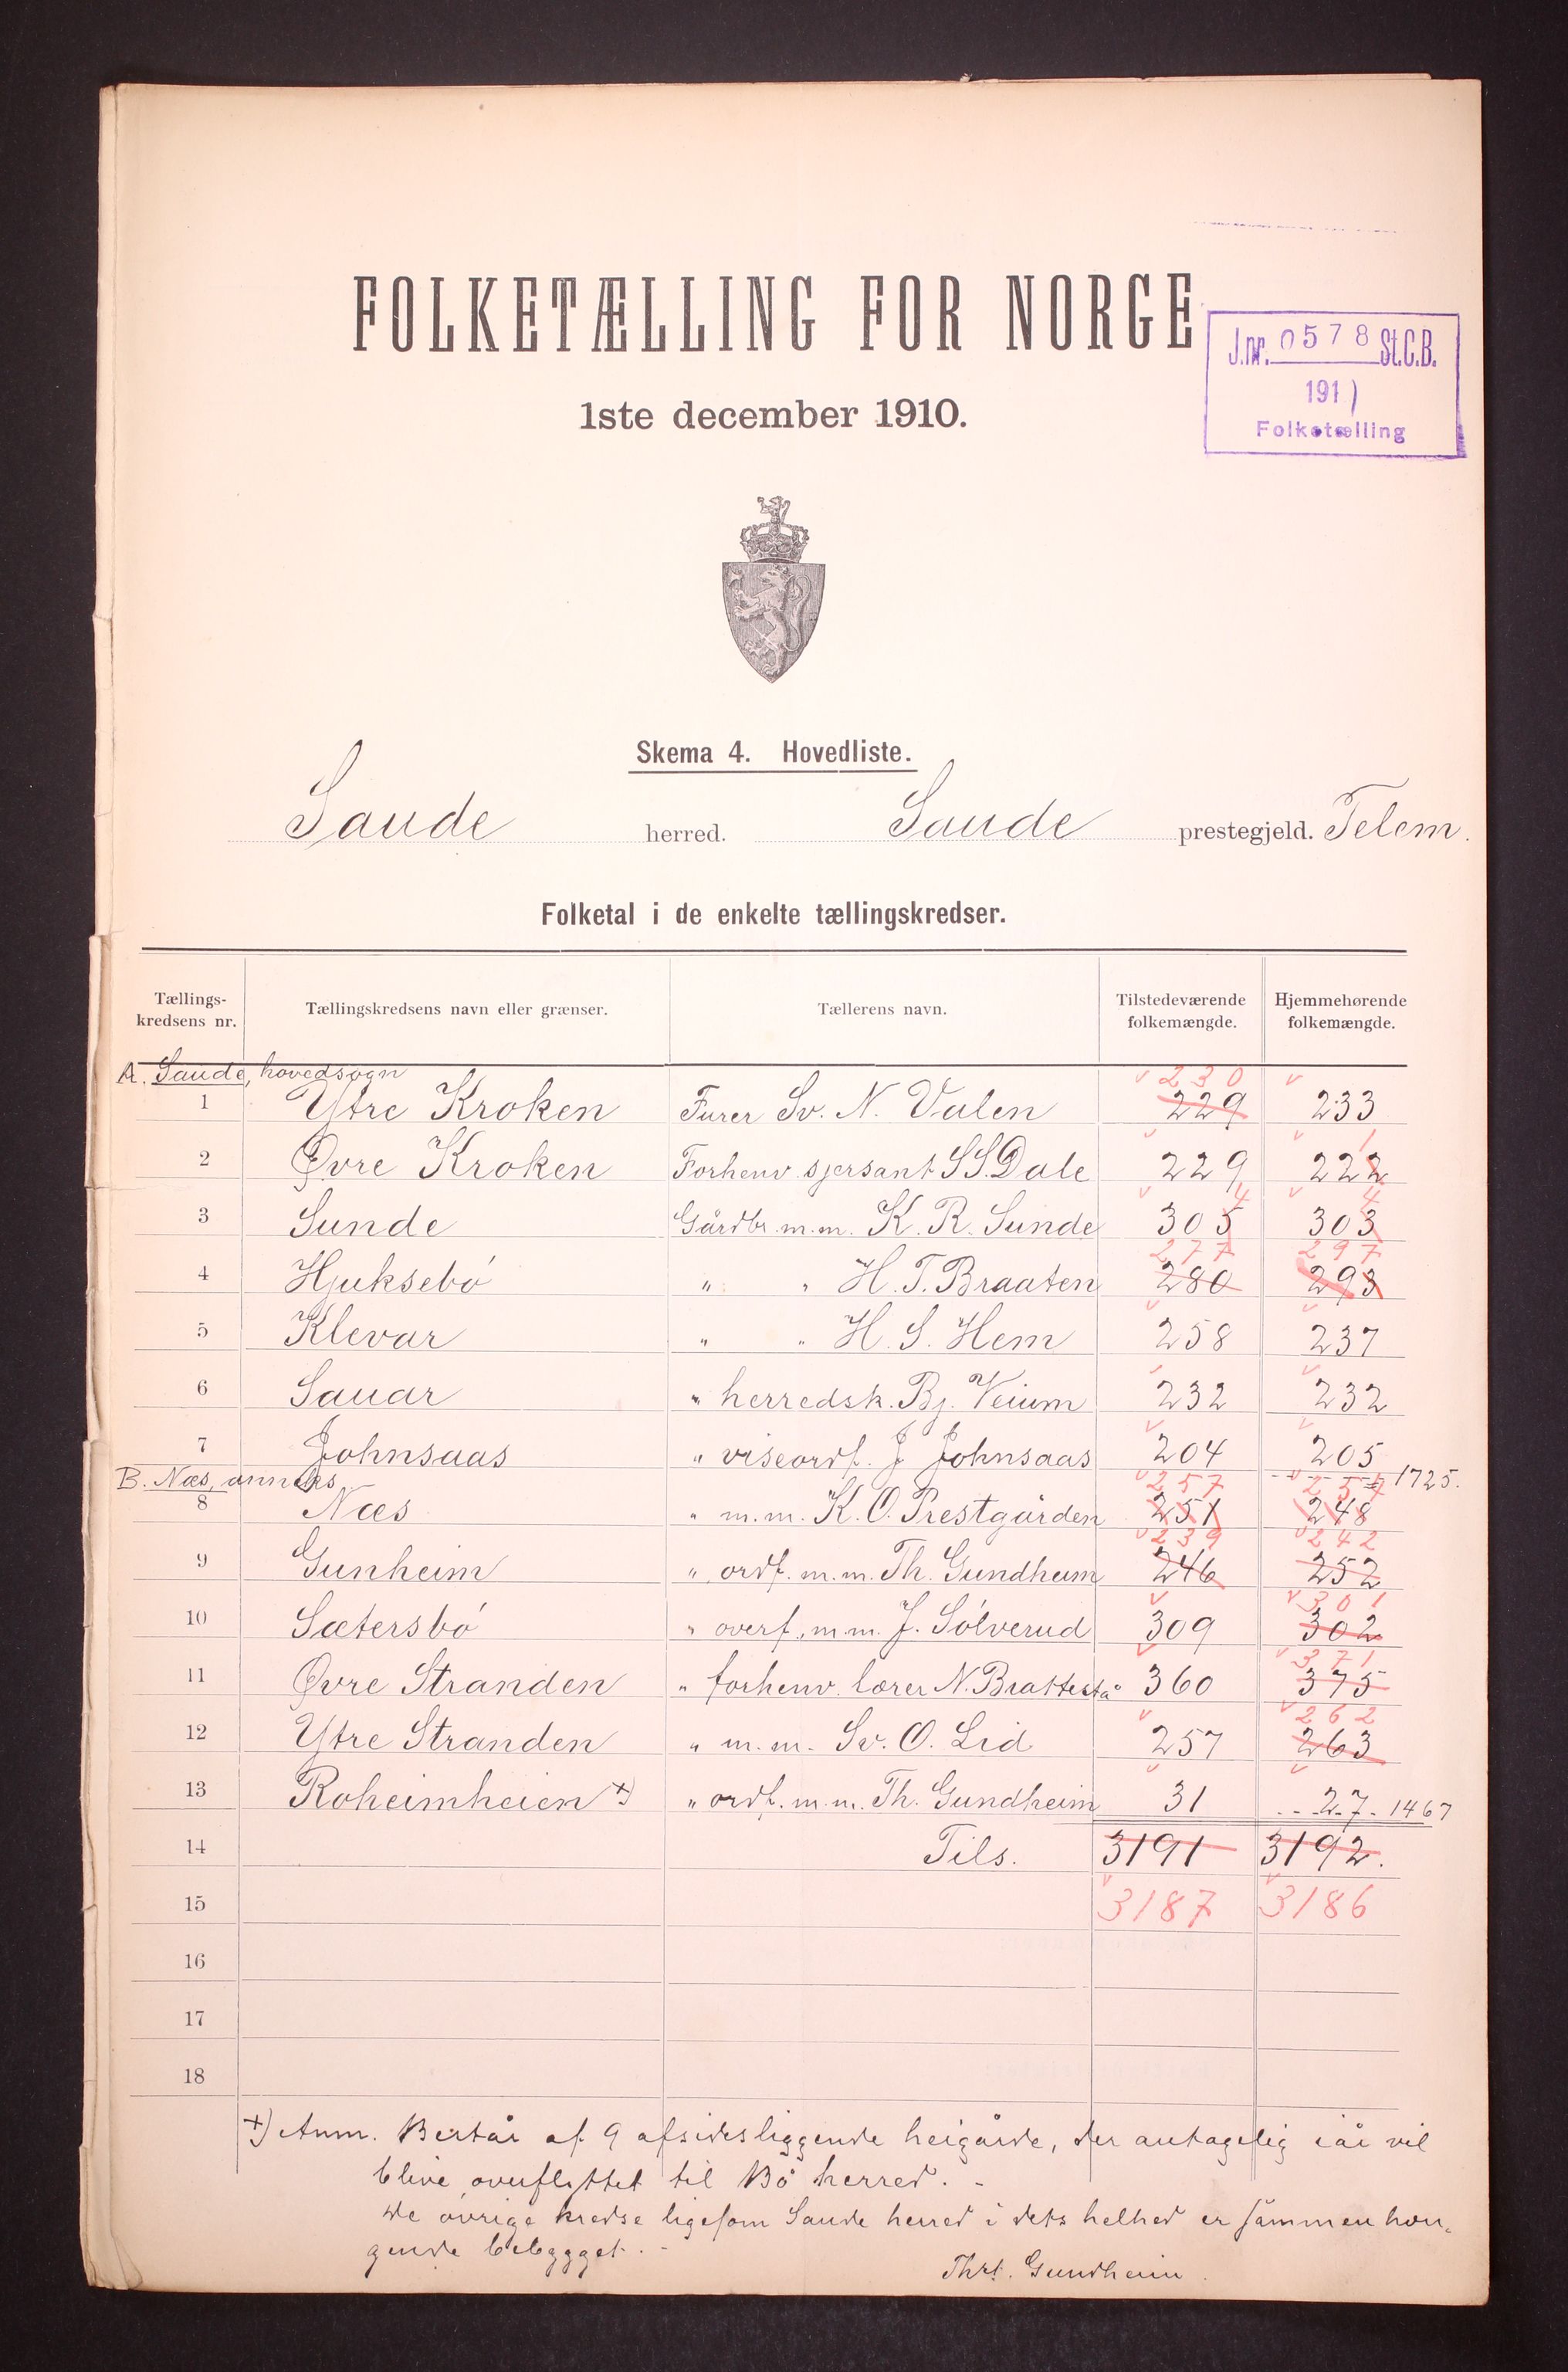 FOLKETÆLLING FOR NORGE
J.nr. 0578 St.C.B.
191)
Folketælling
1ste december 1910.
Skema 4. Hovedliste.
Saude herred. Saude prestegjeld. Telem.
Folketal i de enkelte tællingskredser.
Tællings-kredsens nr. Tællingskredsens navn eller grænser. Tællerens navn. Tilstedeværende folkemængde. Hjemmehørende folkemængde.
A. Saude, hovedsogn
230
1 Ytre Kroken Furer Sv. N. Valen 229 233
1
2 Øvre Kroken Forhenv. sjersant S S. Dale 229 222
4 4
3 Sunde Gårdbr. m.m. K. R. Sunde 305 303
277 297
4 Hjuksebö " " H. T. Braaten 280 293
5 Klevar " " H. S. Hem 258 237
6 Sauar " herredsk. Bj. Veium 232 232
7 Johnsaas " viseordf. J. Johnsaas 204 205
B. Næs, anneks 1725.
257 257
8 Næs " m.m. K. O. Prestgården 251 248
239 242
9 Gunheim " ordf. m.m. Th. Gundheim 246 252
301
10 Sætersbö " overf. m.m. J. Sölverud 309 302
371
11 Øvre Stranden " forhenv. lærer N. Brattestå 360 375
262
12 Ytre Stranden " m.m. Sv. O. Lid 257 263
13 Roheimheien +) " ordf. m.m. Th. Gundheim 31 27 1467
14 Tils. 3191 3192.
15 3187 3186
16
17
18
+) Anm. Består af 9 afsidesliggende heigårde, der antagelig iår vil
blive overflyttet til Bö herred. -
De övrige kredse ligesom Saude herred i dets helhed er sammenhæn-
gende bebygget. -
Thrt. Gundheim.